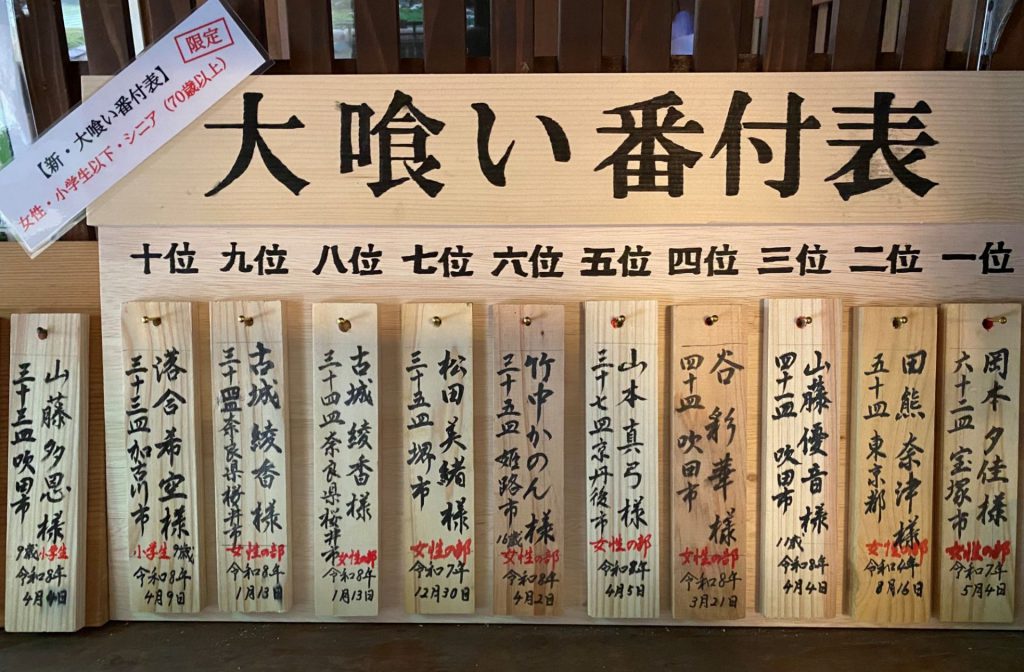 【新・大喰い番付表】
限定
女性・小学生以下・シニア(70歳以上)
大喰い番付表
一位
岡本夕佳様
六十二皿 宝塚市
女性の部
令和7年
5月4日
二位
田熊奈津様
五十皿 東京都
女性の部
令和4年
8月16日
三位
山藤優音様
四十二皿 吹田市
11歳
令和8年
4月4日
四位
谷彩華様
四十皿 吹田市
女性の部
令和8年
3月21日
五位
山本真弓様
三十七皿 京丹後市
女性の部
令和8年
4月5日
六位
竹中かのん様
三十五皿 姫路市
16歳
女性の部
令和8年
4月2日
七位
松田美緒様
三十五皿 堺市
女性の部
令和7年
12月30日
八位
古城綾香様
三十四皿 奈良県桜井市
女性の部
令和8年
1月13日
九位
古城綾香様
三十四皿 奈良県桜井市
女性の部
令和8年
1月13日
十位
落合希空様
三十三皿 加古川市
小学生 9歳
令和8年
4月9日
山藤多恩様
三十三皿 吹田市
9歳 小学生
令和8年
4月4日